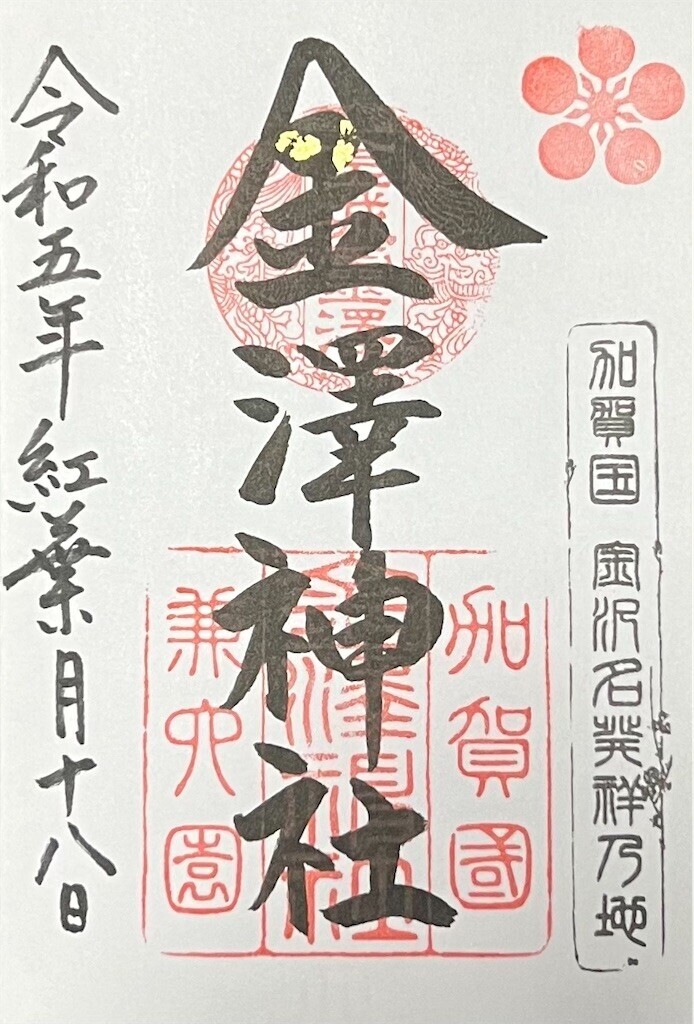 加賀国 金沢名発祥乃地
金澤神社
加賀國
金澤神社
兼六園
令和五年紅葉月十八日